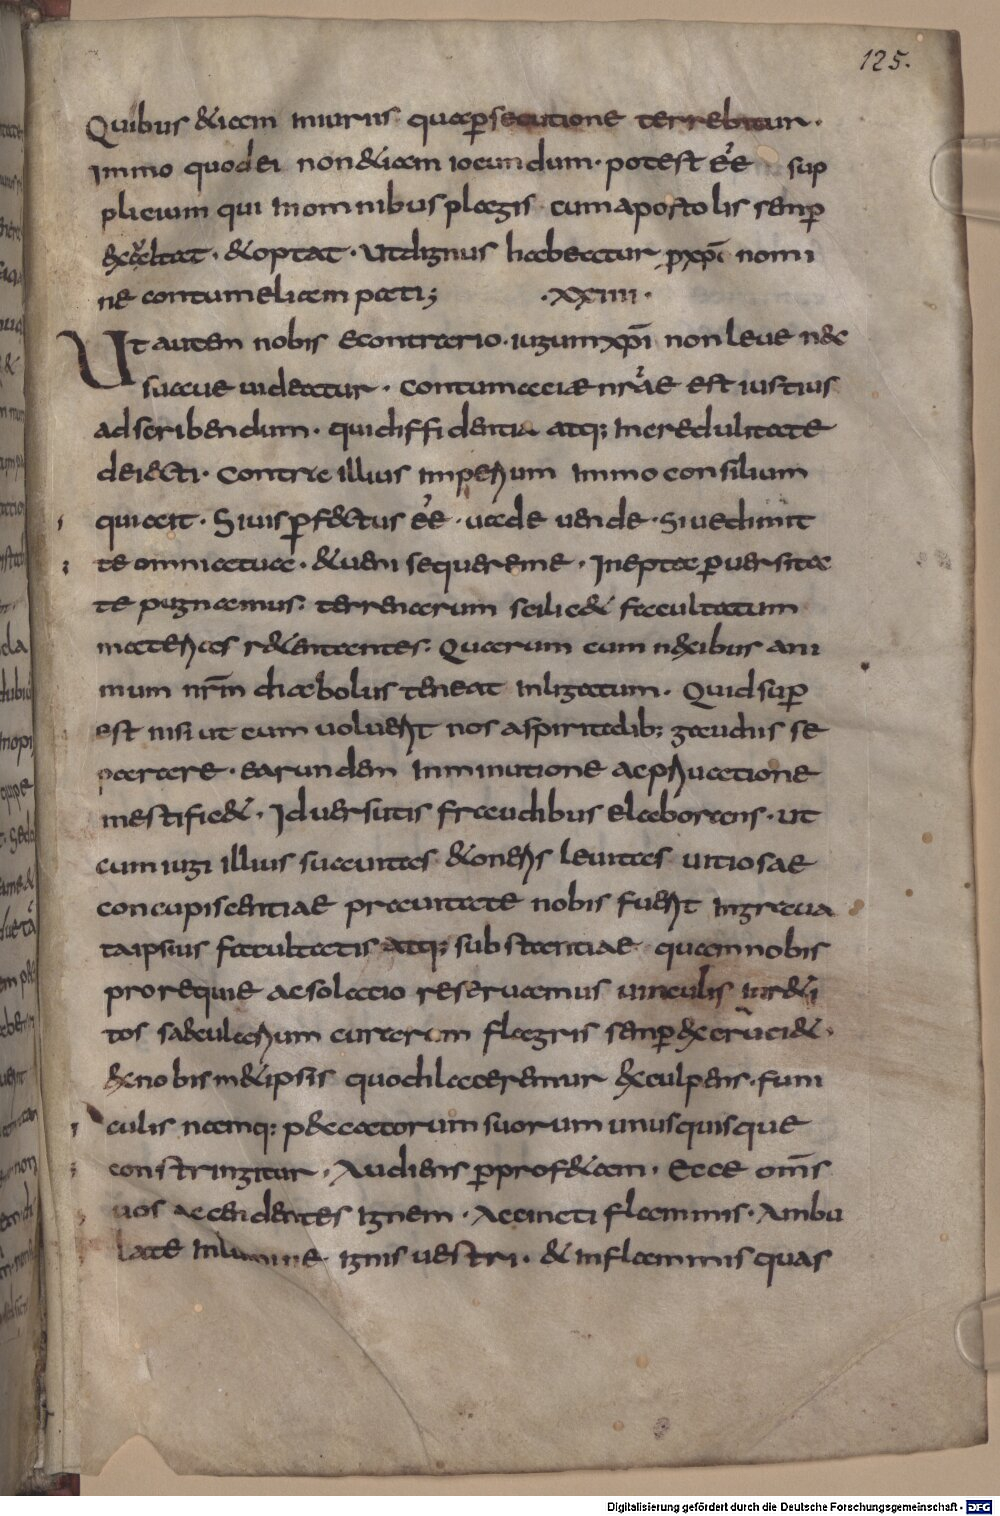 125.
Quibus &iam iniuriis quaepersecutione terrebitur.
Immo quodei non&iam iocundum. potest eẽ sup
plicium qui inomnibus plagis cum apostolis semp
exultat. &optat. utdignus habeatur pxpi nomi
ne contumeliam pati;
.XXIIII.
Ut autem nobis econtrario. iugumxpi non leue nec
suaue uideatur. contumaciae nrae est iustius
adscribendum. quidiffidentia atq; incredulitate
deiecti. contra illius imperium immo consilium
quiait. Siuis pfectus eẽ. uade uende. Siuedimit
te omniatua. &ueni sequereme. Inepta puersita
te pugnamus: terrenarum scilic& facultatum
materias r&entantes: Quarum cum nexibus ani
mum nrm diabolus teneat inligatum. Quid sup
est nisi ut cum uoluerit nos aspiritalib; gaudiis se
parare. earundem inminutione acpriuatione
mestific&. Id uersutis fraudibus elaborans. ut
cum iugi illius suauitas &oneris leuitas uitiosae
concupiscentiae prauitate nobis fuerit ingraua
taipsius facultatis atq; substantiae quamnobis
prorequie acsolacio reseruamus uinculis inr&i
tos saecularium curarum flagris semp excruci&.
exnobism&ipsis quodilaceremur exculpens. funi
culis namq; peccatorum suorum unusquisque
constringitur. Audiens pprof&am. Ecce oms
uos accendentes ignem. Accincti flammis. Ambu
late inlumine ignis uestri. & inflammis quas
Digitalisierung gefördert durch die Deutsche Forschungsgemeinschaft - DFG